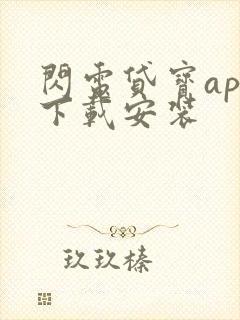 閃電貸寶ap
下載安裝
玖玖榛